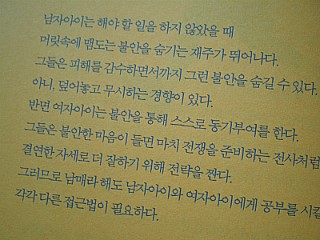 남자아이는 해야 할 일을 하지 않았을 때
머릿속에 맴도는 불안을 숨기는 재주가 뛰어나다.
그들은 피해를 감수하면서까지 그런 불안을 숨길 수 있다.
아니, 덮어놓고 무시하는 경향이 있다.
반면 여자아이는 불안을 통해 스스로 동기부여를 한다.
그들은 불안한 마음이 들면 마치 전쟁을 준비하는 전사처럼
결연한 자세로 더 잘하기 위해 전략을 짠다.
그러므로 남매라 해도 남자아이와 여자아이에게 공부를 시킬
각각 다른 접근법이 필요하다.